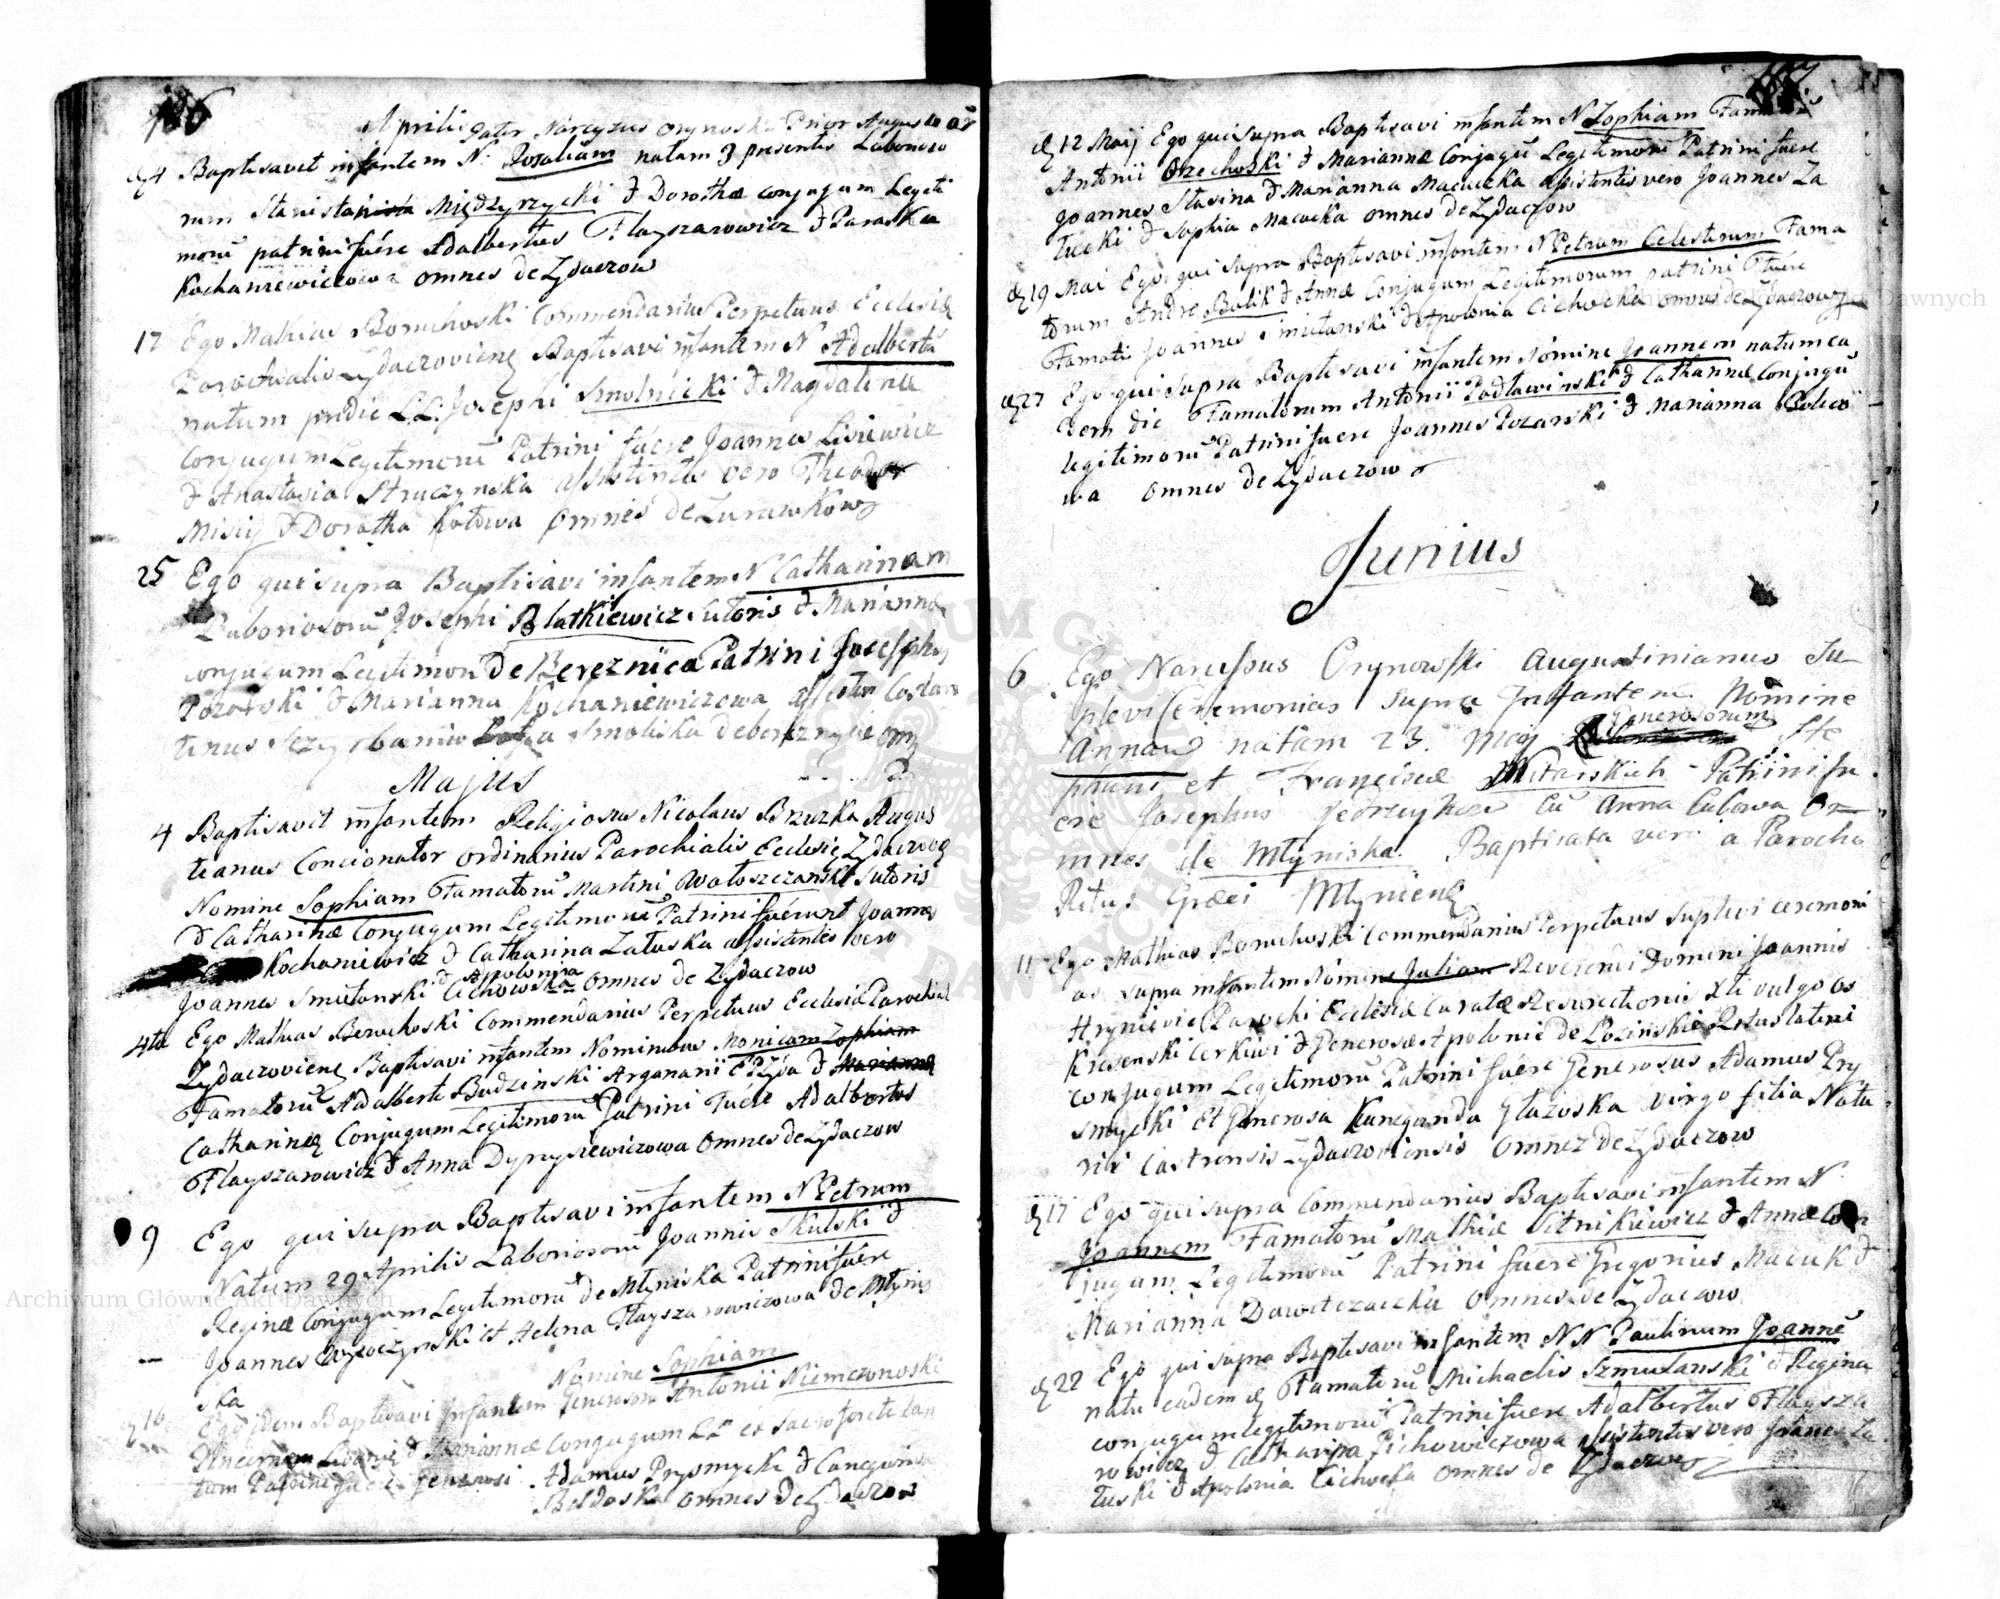 186
Aprilis Pater Narcyzus Orynoski Prior Augustianor
d 4 Baptisavit infantem N: Rosaliam natam 3 presentis Laborioso
rum Stanislai Międzyrzycki & Dorothæ conjugum Legiti
morũ patrini fuere Adalbertus Flayszarowicz & Paraska
Kochaniewiczowa omnes de Zydaczow
17 Ego Mathias Boruchoski Commendarius Perpetuus Ecclesiæ
Parochialis Zydaczoviensę Baptisavi infantem N Adalbertũ
natum pridie LL: Josephi Smolnicki & Magdalenæ
conjugum Legitimorũ Patrini fuere Joannes Lisiewicz
& Anastasia Struczynska assistentes vero Theodor
Misiy & Dorotha Kotowa omnes de Zurawkow
25 Ego qui supra Baptisavi infantem N Catharinam
Laboriosorũ Josephi Blatkiewicz Sutoris & Mariannæ
conjugum Legitimorũ de Bereznica Patrini Josephus
Pozarski & Marianna Kochaniewiczowa assisten Costan
tinus Szczyrbaniw Smoliska de bereznycie omn
Majus
4 Baptisavit infantem Religiosus Nicolaus Brzuzka Augus
tianus Concionator ordinarius Parochialis Ecclesię Zydaczovię
Nomine Sophiam Famatorũ Martini Wołoszczanski Sutoris
& Catharinæ Conjugum Legitimorũ Patrini fuerunt Joannes
Kochaniewicz & Catharina Załuska assistentes vero
Joannes Smutanski & Apolonia Cichowska omnes de Zydaczow
4ta Ego Mathias Boruchoski Commendarius Perpetuus Ecclesiæ Parochial
Zydaczovienę Baptisavi infantem Nominibus Monicam Zophiam
Famatorũ Adalberti Budzinski Arganarii E Zyda & Marianna
Catharinæ Conjugum Legitimorũ Patrini Fuere Adalbertus
Flayszarowicz & Anna Dyrysiewiczowa omnes de Zydaczow
9 Ego qui supra Baptisavi infantem N Petrum
Natum 29 Aprilis Laboriosorũ Joannis Skulski &
Reginæ Conjugum Legitimorũ de Młyniska Patrini fuere
Joannes Wysoczynski et Helena Flayszarowiczowa de Młynis
ska
Nomine Sophiam
d 10 Ego idem Baptisavi Infantem Generosorũ Antonii Niemczonoski
& Mariannæ conjugum LL ex sacro fonte
Patrini fuere Generosi Adamus Prysmycki & Cunegunda
Beldoska omnes de Zydaczow
187
d 12 Maij Ego qui supra Baptisavi infantem N Zophiam Famatorũ
Antonii Orzechoski & Mariannæ Conjugũ Legitimorũ Patrini fuere
Joannes Stasina & Marianna Macucka assistentes vero Joannes Za
łucki & Sophia Macucka omnes de Zydaczow
d 19 Mai Ego qui supra Baptisavi infantem N Petrum Celestinum Fama
torum Andre Bulik & Annæ Conjugum Legitimorum patrini Fuere
Famati Joannes Smutanski & Apolonia Cichocka omnes de Zydaczow
d 27 Ego qui supra Baptisavi infantem Nomine Joannem natum ea
dem die Famatorum Antonii Podławinski & Catharinæ Conjugũ
legitimorũ Patrini fuere Joannes Pozarski & Marianna Bolico
wa omnes de Zydaczow
Junius
6 Ego Narcissus Orynowski Augustinianus Su
plevi Ceremonias supra Infantem Nomine
Annam natam 23. Maij Generosorum Ste
phani et Franciscæ Mitarskich Patrini fu
ere Josephus cũ Anna Culowa O
mnes de Młyniska. Baptisata vero a Parocho
Ritus Græci Młynienę
11 Ego Mathias Boruchoski Commendarius Perpetuus Suplevi ceremoni
as supra infantem Nomine Juliam Reverendi Domini Joannis
Hryniewicz Parochi Ecclesiæ Curatæ Resurectionis Xti vulgo os
kresenski Cerkiwi & Generosæ Apoloniæ de Łozinskie Ritus Latini
conjugum Legitimorũ Patrini fuere Generosus Adamus Pry
smycki Et Generosa Kunegunda Głazoska virgo filia Nota
rii Castrensis Zydaczoviensis omnez de Zydaczow
d 17 Ego qui supra Commendarius Baptisavi infantem N.
Joannem Famatorũ Mathiæ Sitnikiewicz & Annæ Con
jugum Legitimorũ Patrini fuere Gregorius Macuk &
Marianna Dawitczaczka omnes de Zydaczow
d 22 Ego qui supra Baptisavi infantem NN Paulinum Joannẽ
natũ eadem d Famatorũ Michaelis Szmulanski & Regina
conjugum legitimorũ Patrini fuere Adalbertus Flaysza
rowicz & Catharina Pichowiczowa assistentes vero Joanes Za
łuski & Apolonia Cichocka omnes de Zydaczow
Archiwum Główne Akt Dawnych